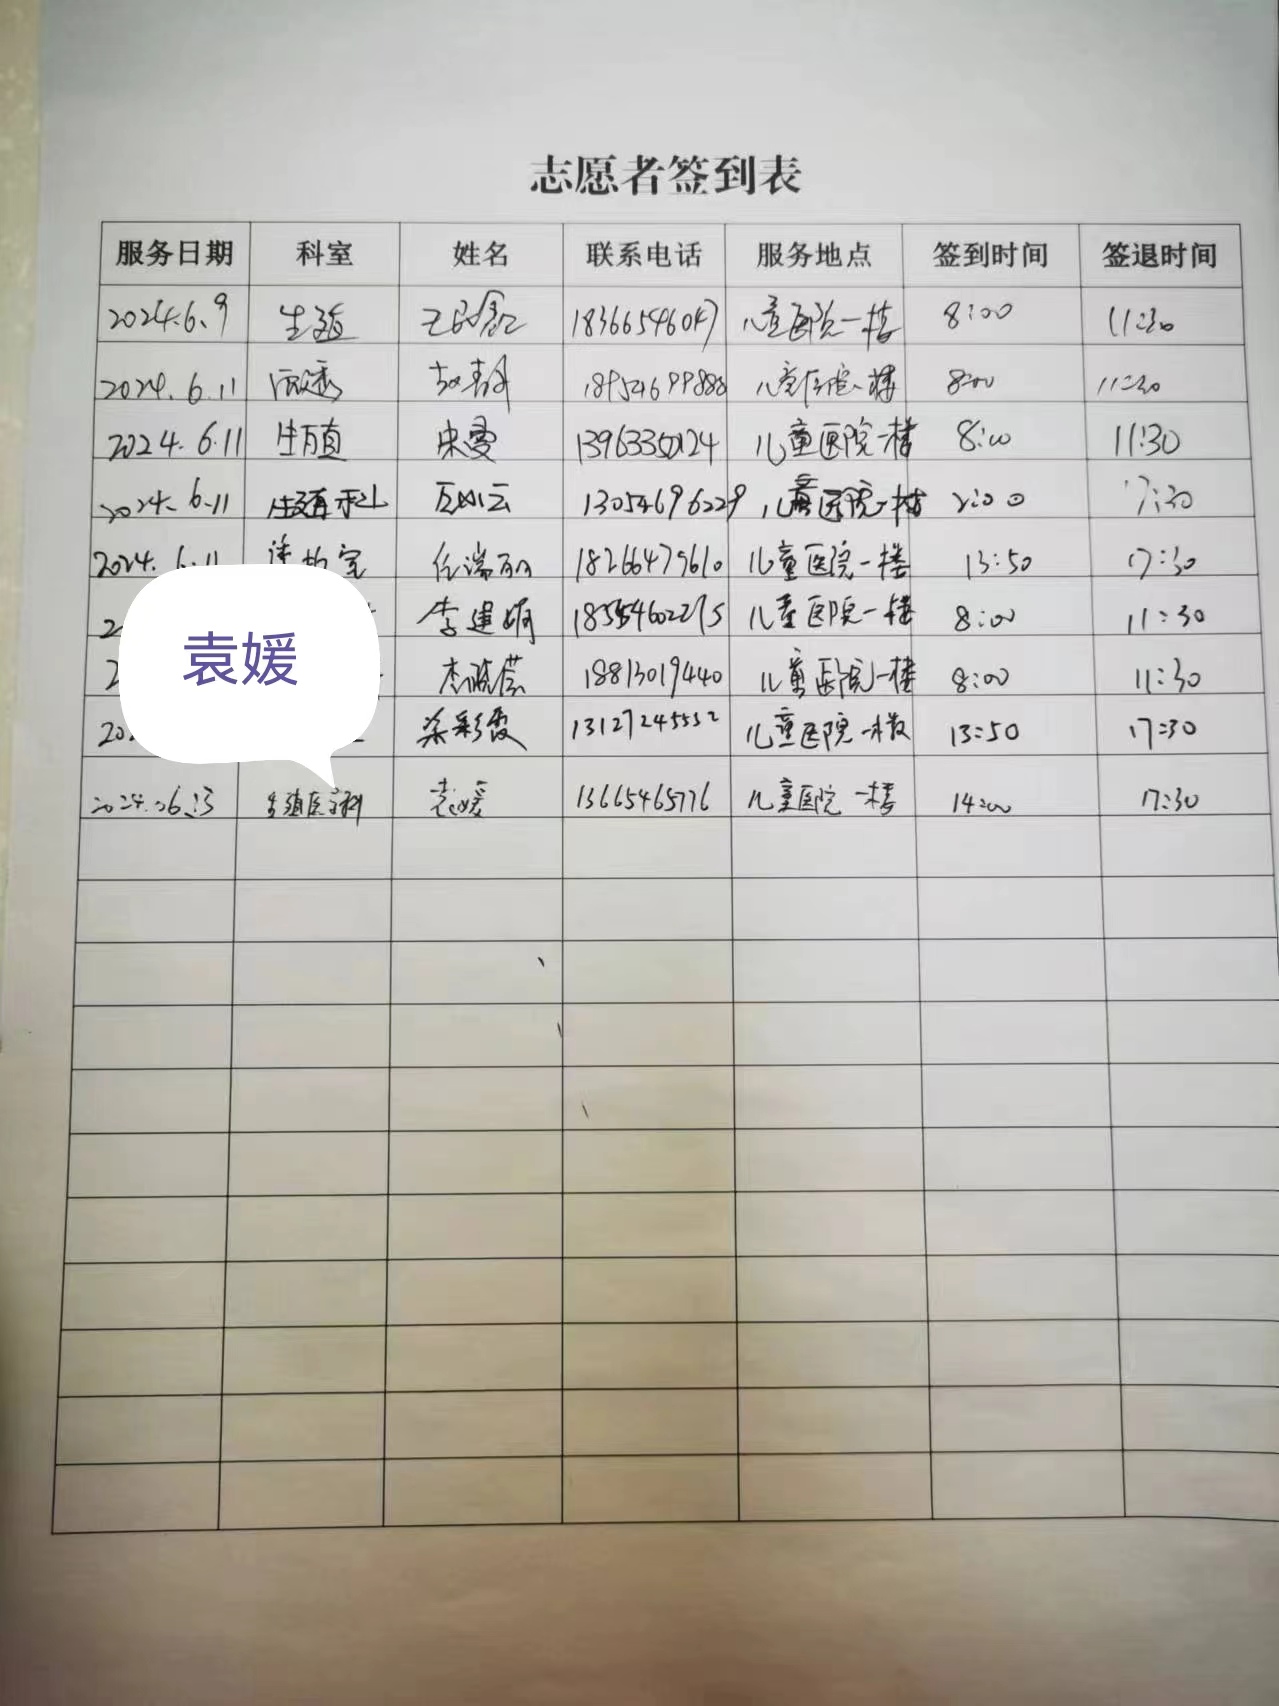 志愿者签到表
服务日期 科室 姓名 联系电话 服务地点 签到时间 签退时间
2024.6.9 生殖 18366546047 儿童医院一楼 8:00 11:30
2024.6.11 18954699888 儿童医院一楼 8:00 11:30
2024.6.11 生殖 宋雯 儿童医院一楼 8:00 11:30
2024.6.11 生殖科 13054696229 儿童医院一楼 2:00 17:30
2024.6.11 任瑞丽 18266475610 儿童医院一楼 13:50 17:30
李建娟 18554602275 儿童医院一楼 8:00 11:30
18813019440 儿童医院一楼 8:00 11:30
彩霞 13127245552 儿童医院一楼 13:50 17:30
袁媛
2024.06.13 生殖医学科 袁媛 13665465776 儿童医院一楼 14:00 17:30